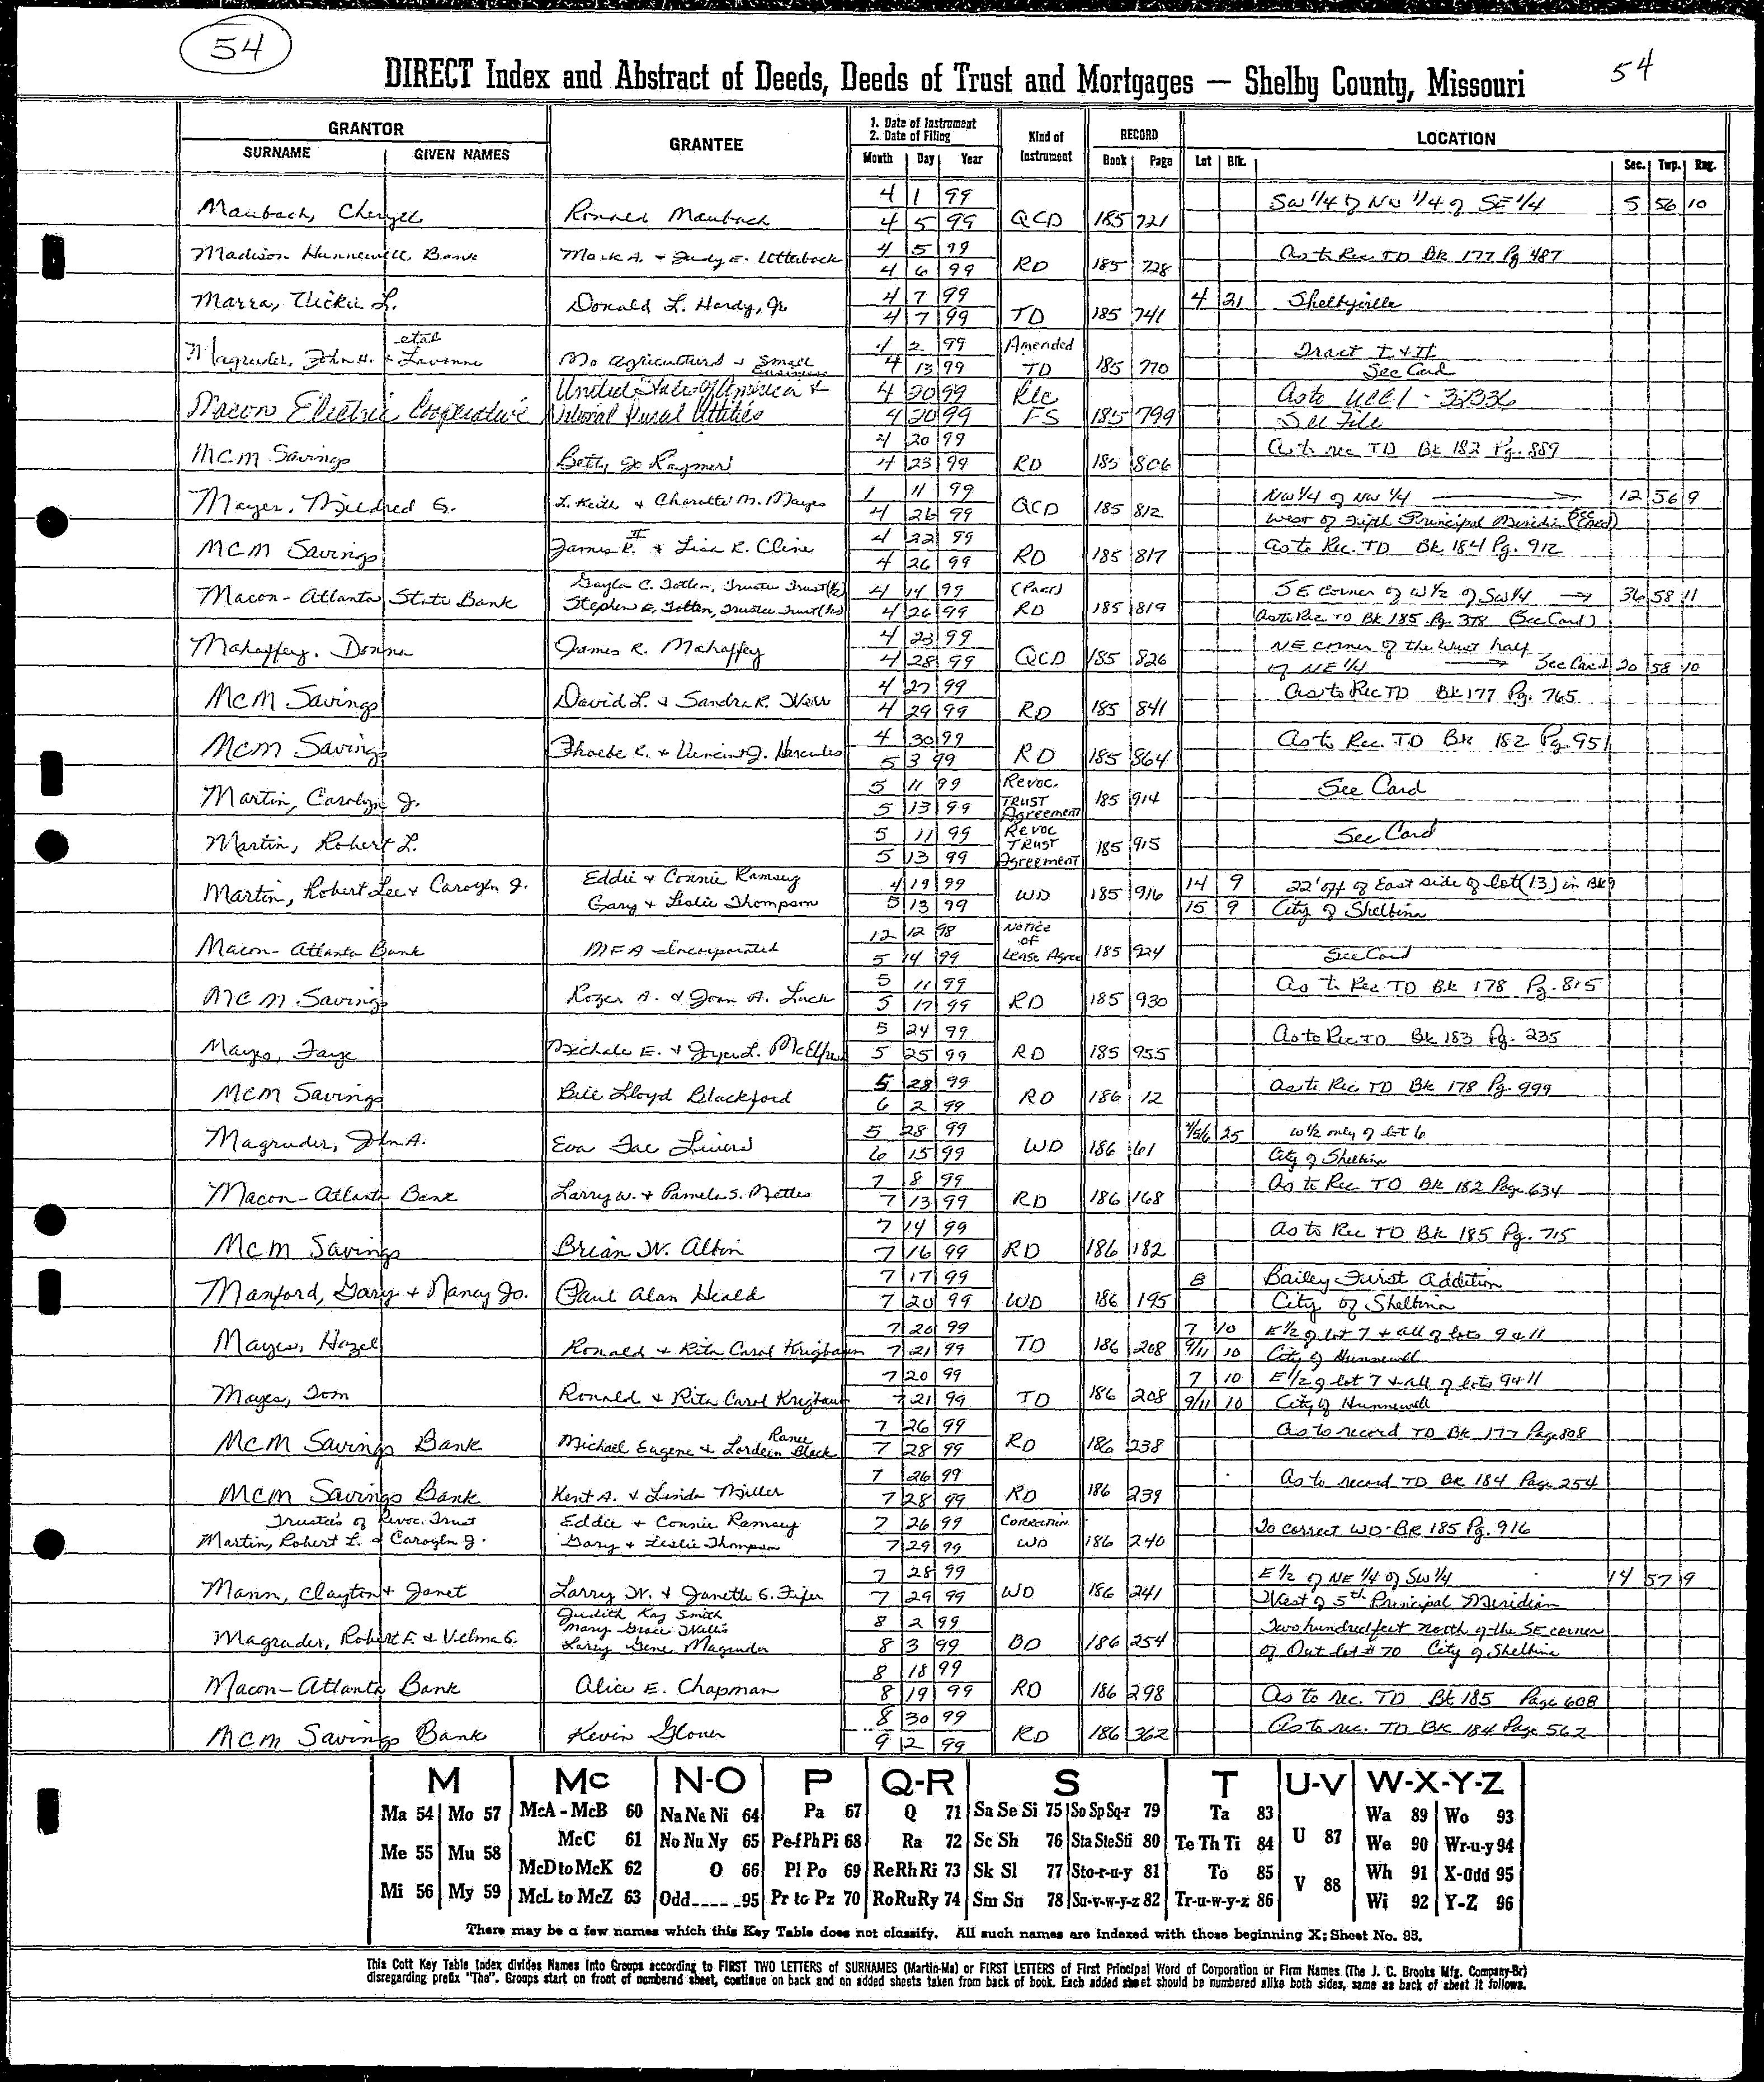 54
54
DIRECT Index and Abstract of Deeds, Deeds of Trust and Mortgages — Shelby County, Missouri
GRANTOR
SURNAME GIVEN NAMES
GRANTEE
1. Date of Instrument
2. Date of Filing
Month Day Year
Kind of Instrument
RECORD
Book Page
Lot Blk.
LOCATION
Sec. Twp. Rng.
4 1 99 SW 1/4 of NW 1/4 of SE 1/4 5 56 10
Maubach, Cheryll Ronald Maubach 4 5 99 QCD 185 721
4 5 99 As to Rec TD Bk 177 Pg 487
Madison Hunnewell Bank Mark A. + Judy E. Utterback 4 6 99 RD 185 728
Marra, Vickie L. Donald L. Hardy, Jr 4 7 99 4 21 Shelbyville
4 7 99 TD 185 741
etal 1 2 99 Amended Tract I + II
Magruder, John H. & Lavonne Mo Agricultural & Small Business 4 13 99 TD 185 770 See Card
United States of America + 4 20 99 Rle As to UCC 1 - 32336
Macon Electric Cooperative National Rural Utilities 4 20 99 FS 185 799 See File
4 20 99 As to rec TD Bk 182 Pg. 889
MCM Savings Betty Jo Raymer 4 23 99 RD 185 806
1 11 99 NW 1/4 of NW 1/4 12 56 9
Mayes, Mildred G. L. Keith + Charlotte M. Mayes 4 26 99 QCD 185 812 West of Fifth Principal Meridian (See Card)
4 22 99 As to Rec. TD Bk 184 Pg. 912
MCM Savings James R. II + Lisa R. Cline 4 26 99 RD 185 817
Gayla C. Totten, Trustee Trust (1/2) 4 14 99 (Part) SE corner of W 1/2 of SW 1/4 → 36 58 11
Macon-Atlanta State Bank Stephen E. Totten, Trustee Trust (1/2) 4 26 99 RD 185 819 As to Rec TD Bk 185 Pg. 378 (See Card)
4 23 99 NE corner of the West half
Mahaffey, Donna James R. Mahaffey 4 28 99 QCD 185 826 of NE 1/4 → See Card 20 58 10
4 27 99 As to Rec TD Bk 177 Pg. 765
MCM Savings David L. + Sandra K. 4 29 99 RD 185 841
4 30 99 As to Rec. TD Bk 182 Pg. 951
MCM Savings Phoebe K. + Vincent J. Hercules 5 3 99 RD 185 864
5 11 99 Revoc. See Card
Martin, Carolyn J. 5 13 99 TRUST Agreement 185 914
5 11 99 Revoc TRUST See Card
Martin, Robert L. 5 13 99 Agreement 185 915
Eddie + Connie Ramsey 4 19 99 14 9 22' off of East side of lot (13) in Bk 9
Martin, Robert Lee + Carolyn J. Gary + Leslie Thompson 5 13 99 WD 185 916 15 9 City of Shelbina
12 12 98 Notice of
Macon-Atlanta Bank MFA Incorporated 5 14 99 Lease Agree 185 924 See Card
5 11 99 As to Rec TD Bk 178 Pg. 815
MCM Savings Roger A. & Joan A. Luck 5 17 99 RD 185 930
5 24 99 As to Rec TD Bk 183 Pg. 235
Mayes, Faye Michale E. + Joyce L. 5 25 99 RD 185 955
5 28 99 As to Rec TD Bk 178 Pg. 999
MCM Savings Bill Lloyd Blackford 6 2 99 RD 186 12
5 28 99 4/5/6 25 W 1/2 only of lot 6
Magruder, John A. Eva 6 15 99 WD 186 61 City of Shelbina
7 8 99 As to Rec. TD Bk 182 Page 634
Macon-Atlanta Bank Larry W. + Pamela S. Mettes 7 13 99 RD 186 168
7 14 99 As to Rec TD Bk 185 Pg. 715
MCM Savings Brian W. Albin 7 16 99 RD 186 182
7 17 99 8 Bailey First Addition
Manford, Gary + Nancy Jo. Paul Alan Heald 7 20 99 WD 186 195 City of Shelbina
7 20 99 7 10 E 1/2 of lot 7 + all of lots 9 & 11
Mayes, Hazel Ronald + Rita Carol Krigbaum 7 21 99 TD 186 208 9/11 10 City of Hunnewell
7 20 99 7 10 E 1/2 of lot 7 + all of lots 9 & 11
Mayes, Tom Ronald + Rita Carol Krigbaum 7 21 99 TD 186 208 9/11 10 City of Hunnewell
7 26 99 As to record TD Bk 177 Page 808
MCM Savings Bank Michael Eugene & Lordein Ranee Black 7 28 99 RD 186 238
7 26 99 As to record TD Bk 184 Page 254
MCM Savings Bank Kent A. & Linda Miller 7 28 99 RD 186 239
Trustees of Revoc. Trust Eddie + Connie Ramsey 7 26 99 Correction To correct WD Bk 185 Pg. 916
Martin, Robert L. & Carolyn J. Gary + Leslie Thompson 7 29 99 WD 186 240
7 28 99 E 1/2 of NE 1/4 of SW 1/4 14 57 9
Mann, Clayton + Janet Larry W. & Janette G. Fifer 7 29 99 WD 186 241 West of 5th Principal Meridian
Judith Kay Smith
Mary Grace Willis 8 2 99 Two hundred feet North of the SE corner
Magruder, Robert F. & Velma G. Larry Gene Magruder 8 3 99 BD 186 254 of Out lot # 70 City of Shelbina
8 18 99
Macon-Atlanta Bank Alice E. Chapman 8 19 99 RD 186 298 As to rec. TD Bk 185 Page 608
8 30 99 As to rec. TD Bk 184 Page 562
MCM Savings Bank Kevin Glover 9 2 99 RD 186 362
M Mc N-O P Q-R S T U-V W-X-Y-Z
Ma 54 Mo 57 McA - McB 60 Na Ne Ni 64 Pa 67 Q 71 Sa Se Si 75 So Sp Sq-r 79 Ta 83 Wa 89 Wo 93
Me 55 Mu 58 McC 61 No Nu Ny 65 Pe-f Ph Pi 68 Ra 72 Sc Sh 76 Sta Ste Sti 80 Te Th Ti 84 U 87 We 90 Wr-u-y 94
McD to McK 62 O 66 Pl Po 69 Re Rh Ri 73 Sk Sl 77 Sto-r-u-y 81 To 85 V 88 Wh 91 X-Odd 95
Mi 56 My 59 McL to McZ 63 Odd 95 Pr to Pz 70 Ro Ru Ry 74 Sm Sn 78 Su-v-w-y-z 82 Tr-u-w-y-z 86 Wi 92 Y-Z 96
There may be a few names which this Key Table does not classify. All such names are indexed with those beginning X; Sheet No. 95.
This Cott Key Table Index divides Names Into Groups according to FIRST TWO LETTERS of SURNAMES (Martin-Ma) or FIRST LETTERS of First Principal Word of Corporation or Firm Names (The J. C. Brooks Mfg. Company-Br)
disregarding prefix "The". Groups start on front of numbered sheet, continue on back and on added sheets taken from back of book. Each added sheet should be numbered alike both sides, same as back of sheet it follows.